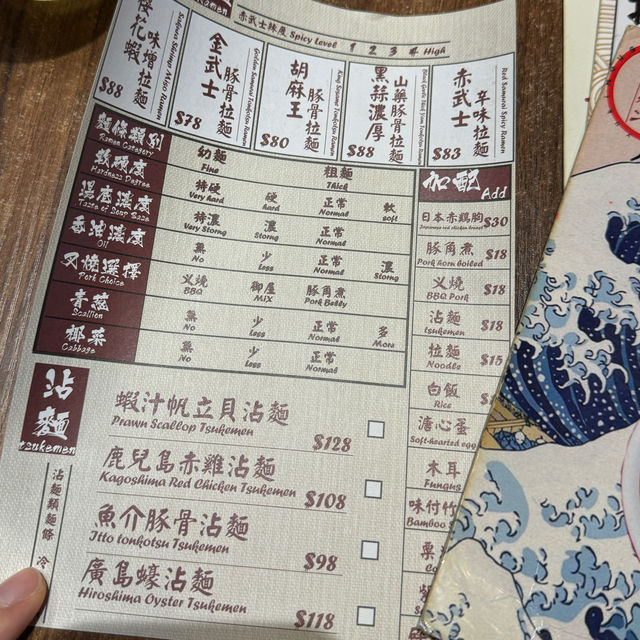 赤武士辣度 Spicy Level 1 2 3 4 High
櫻花蝦
味噌拉麵
Sakura Shrimp Miso Ramen
$88
金武士
豚骨拉麵
$78
胡麻王
豚骨拉麵
$80
黑蒜濃厚
山藥豚骨拉麵
$88
赤武士
辛味拉麵
Red Samurai Spicy Ramen
$83
麵條類別
Ramen Category
幼麵
Fine
粗麵
Thick
麵硬度
Hardness Degree
特硬
Very hard
硬
hard
正常
Normal
軟
soft
湯底濃度
Taste of Soup Base
特濃
Very Storng
濃
Storng
正常
Normal
香油濃度
Oil
無
No
少
Less
正常
Normal
濃
Storng
叉燒選擇
Pork Choice
叉燒
BBQ
御屋
MIX
豚角煮
Pork Belly
青蔥
Scallien
無
No
少
less
正常
Normal
多
More
椰菜
Cabbage
無
No
少
less
正常
Normal
加配 Add
日本赤鶏胸 $30
Japanese red chicken breast
豚角煮 $18
Pork horn boiled
叉燒 $18
BBQ Pork
沾麵 $18
tsukemen
拉麵 $15
Noodle
白飯
Rice
溏心蛋
Soft-hearted egg
木耳
Fungus
味付竹
Bamboo
沾麵
Tsukemen
沾麵類麵條
冷
蝦汁帆立貝沾麵
Prawn Scallop Tsukemen
$128
鹿兒島赤雞沾麵
Kagoshima Red Chicken Tsukemen
$108
魚介豚骨沾麵
Itto tonkotsu Tsukemen
$98
廣島蠔沾麵
Hiroshima Oyster Tsukemen
$118